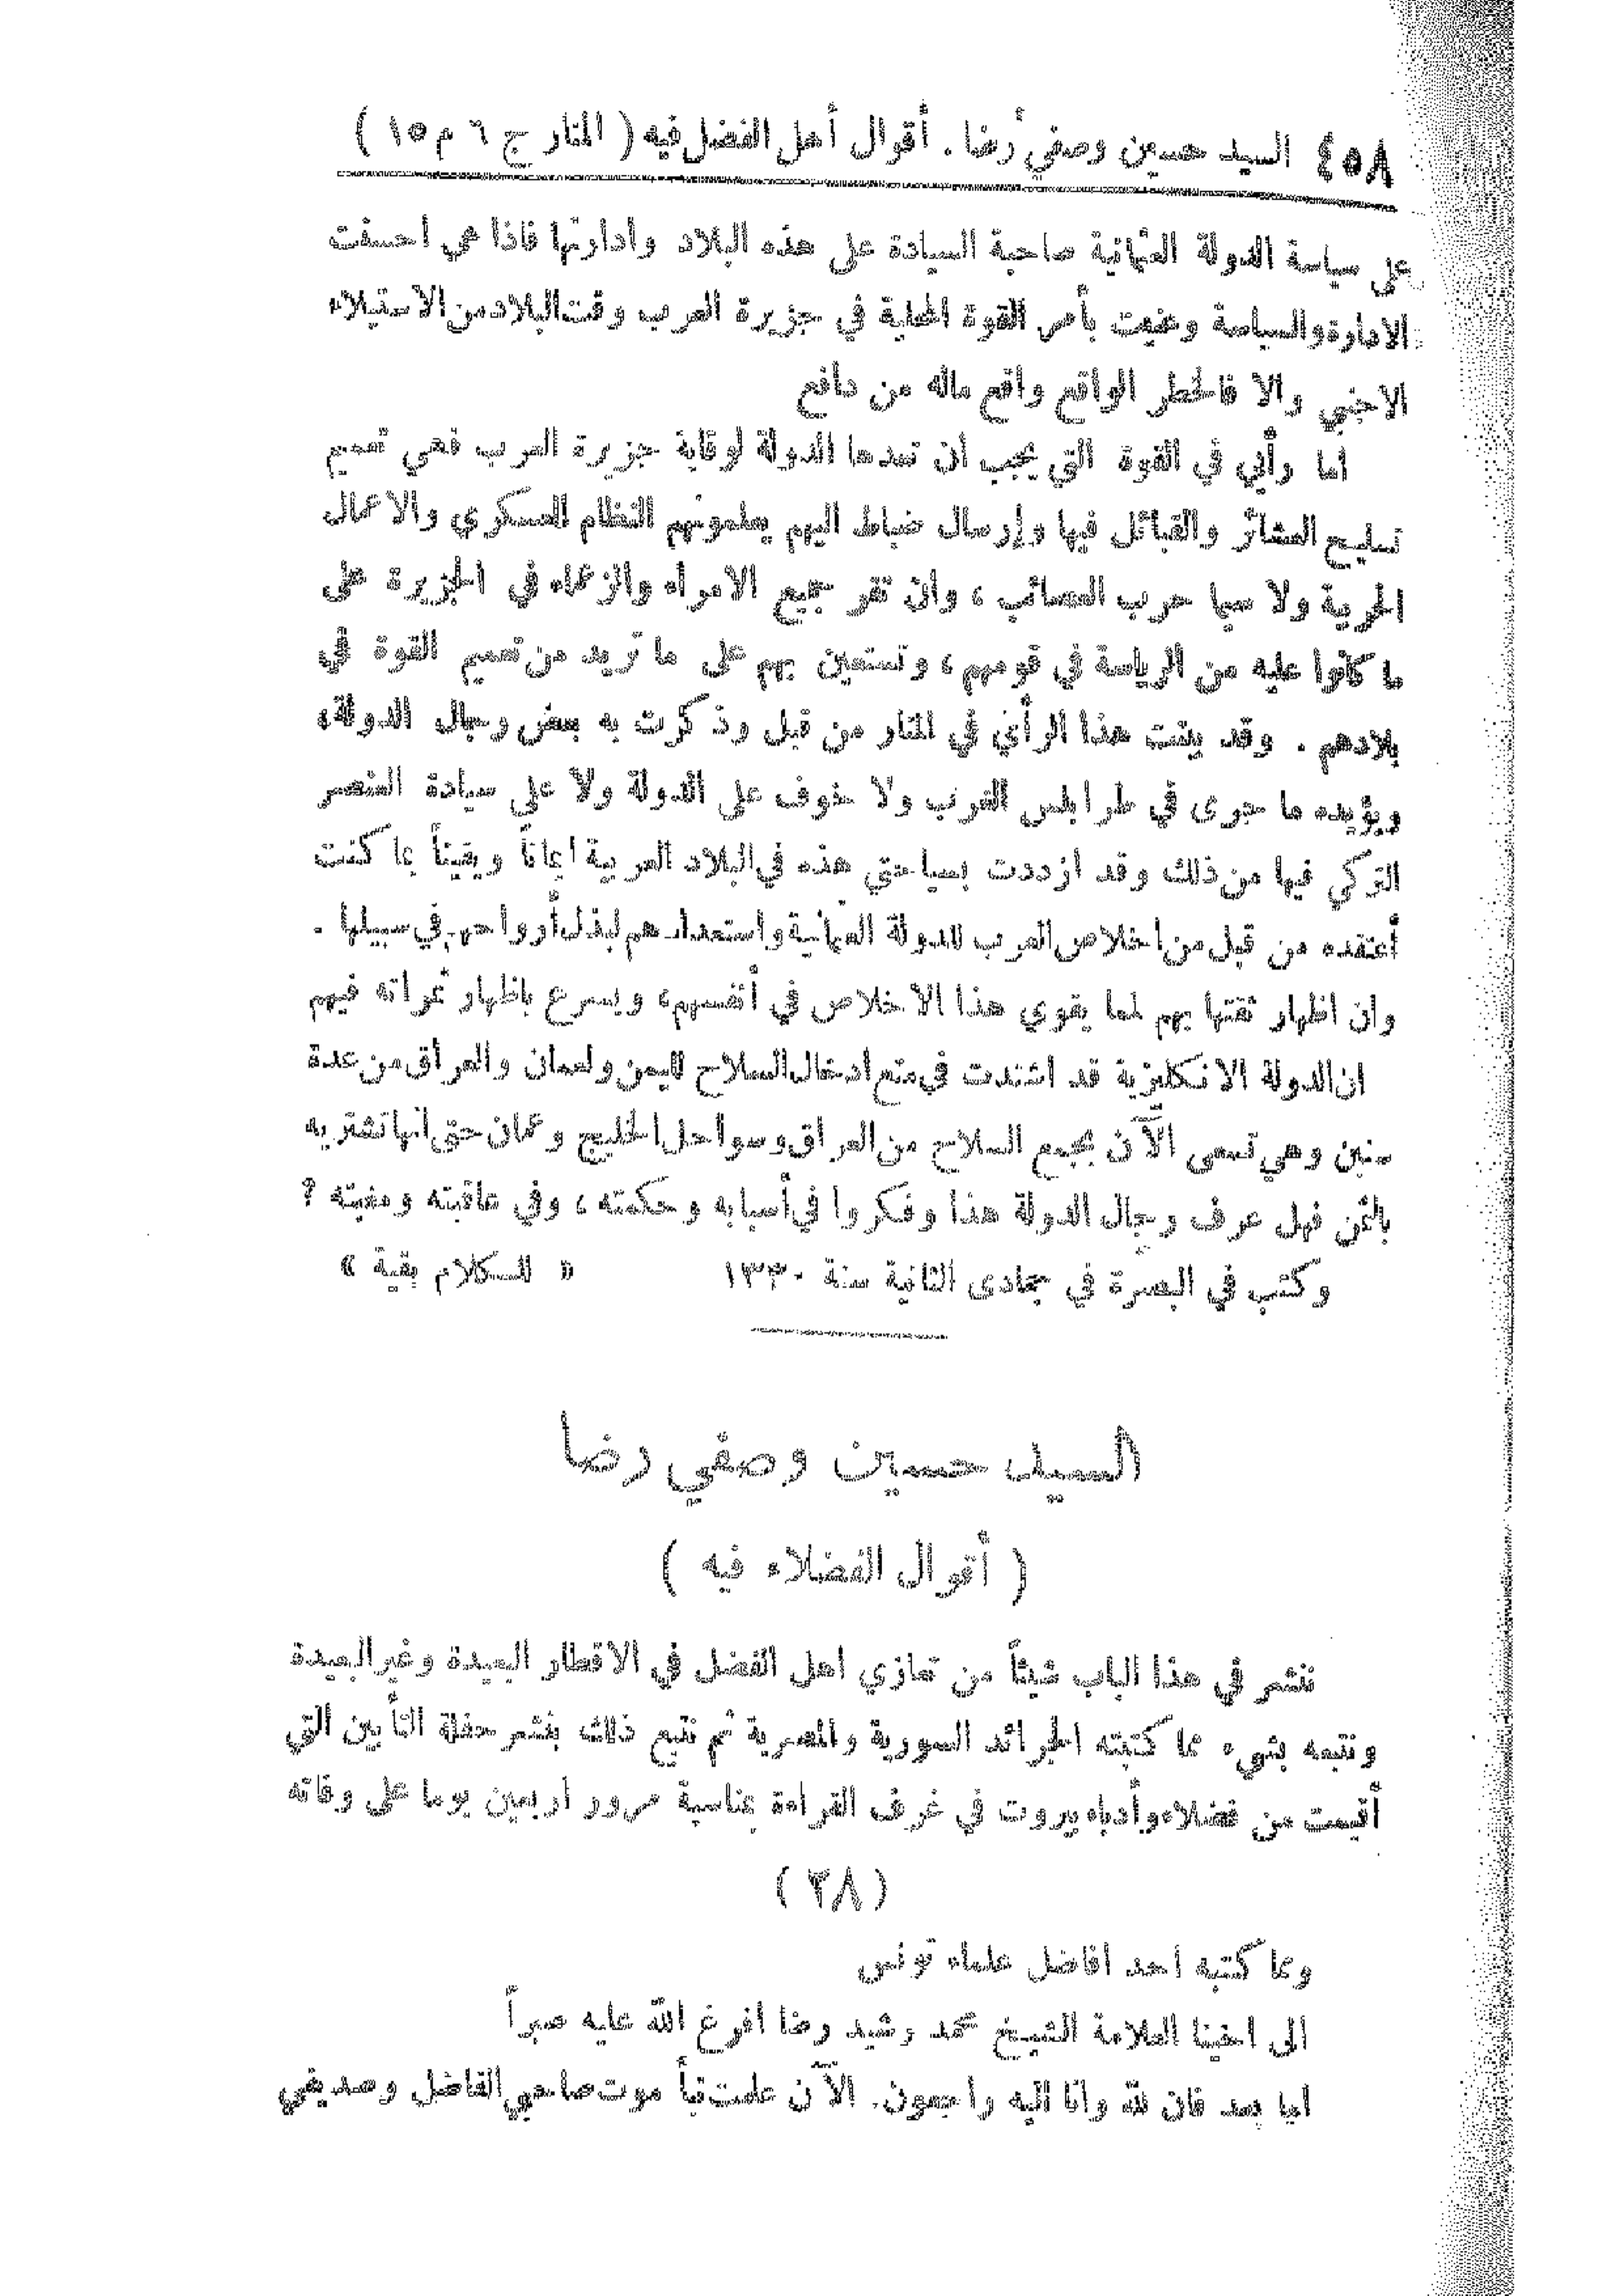 ٤٥٨ السيد حسين وصفي رضا . أقوال أهل الفضل فيه ( المنار ج ٦ م ١٥ )
على سياسة الدولة العثمانية صاحبة السيادة على هذه البلاد وادارتها فاذا هي احسنت
الادارة والسياسة وعنيت بأمر القوة المحلية في جزيرة العرب وقت البلاد من الاستيلاء
الاجنبي والا فالخطر الواقع واقع ماله من دافع
أما رأيي في القوة التي يجب ان تعدها الدولة لوقاية جزيرة العرب فهي تعميم
تسليح العشائر والقبائل فيها وإرسال ضباط اليهم يعلمونهم النظام العسكري والاعمال
الحربية ولا سيما حرب العصائب ، وان تقر جميع الامراء والزعماء في الجزيرة على
ما كانوا عليه من الرياسة في قومهم ، وتستعين بهم على ما تريد من تعميم القوة في
بلادهم . وقد بينت هذا الرأي في المنار من قبل وذكرت به بعض رجال الدولة ،
ويؤيده ما جرى في طرابلس الغرب ولا خوف على الدولة ولا على سيادة العنصر
التركي فيها من ذلك وقد ازددت بسياحتي هذه في البلاد العربية ايمانًا ويقينًا بما كنت
أعتقده من قبل من اخلاص العرب للدولة العثمانية واستعدادهم لبذل أرواحهم في سبيلها .
وان اظهار ثقتها بهم لمما يقوي هذا الاخلاص في أنفسهم ، ويسرع باظهار ثمراته فيهم
ان الدولة الانكليزية قد اشتدت في منع ادخال السلاح لليمن ولعمان والعراق من عدة
سنين وهي تسعى الآن بجمع السلاح من العراق وسواحل الخليج وعمان حتى انها تشتريه
بالثمن فهل عرف رجال الدولة هذا وفكروا في أسبابه وحكمته ، وفي عاقبته ومغبته ؟
وكتب في البصرة في جمادى الثانية سنة ١٣٣٠ « للكلام بقية »
السيد حسين وصفي رضا
( أقوال الفضلاء فيه )
ننشر في هذا الباب شيئًا من تعازي اهل الفضل في الاقطار البعيدة وغير البعيدة
ونتبعه بشيء مما كتبته الجرائد السورية والمصرية ثم نتبع ذلك بنشر حفلة التأبين التي
أقيمت من فضلاء وأدباء بيروت في غرف القراءة بمناسبة مرور اربعين يوما على وفاته
( ٢٨ )
ومما كتبه احد أفاضل علماء تونس
الى اخينا العلامة الشيخ محمد رشيد رضا افرغ الله عليه صبرًا
اما بعد فان لله وانا اليه راجعون . الآن علمت نبأ موت صاحبي الفاضل وصديقي